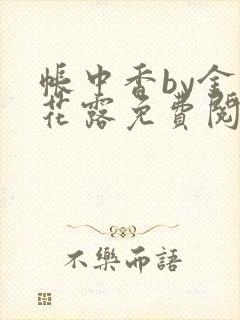 帳中香by金
花露免費閱
不樂而語